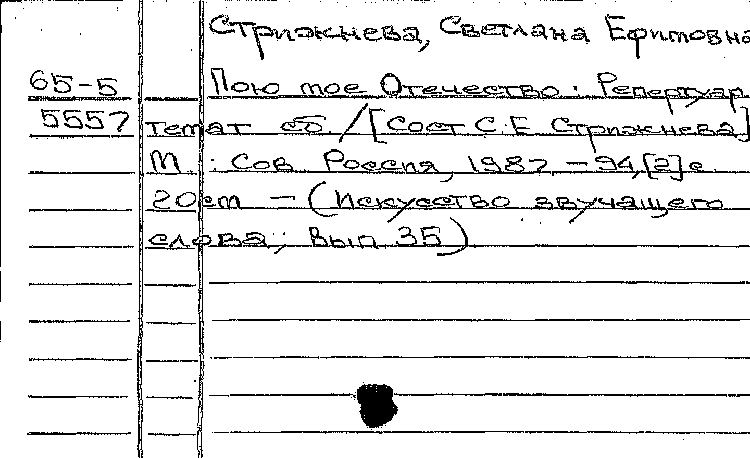 Стрижнева, Светлана Ефимовна
65-5 Пою мое Отечество : Репертуар.
5557 темат сб. / [Сост С.Е Стрижнева]
М. : Сов Россия, 1987. - 94,[2] с
20см - (Искусство звучащего
слова; Вып 35)